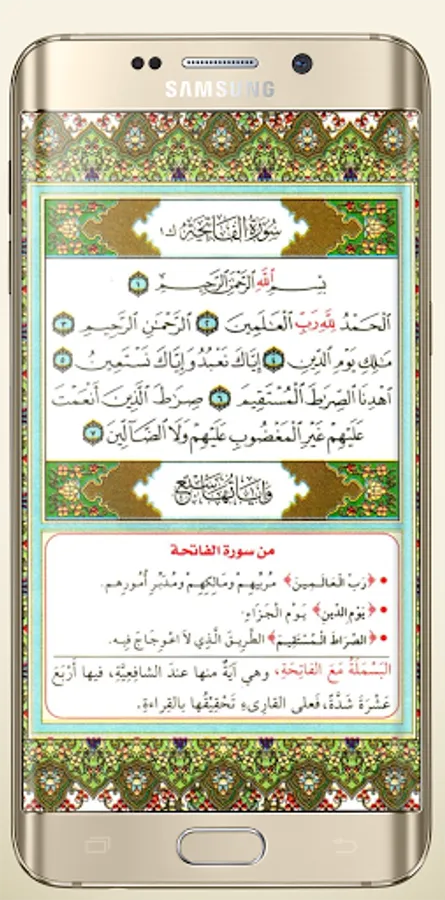 SAMSUNG
سُورَةُ الفَاتِحَة
بِسْمِ ٱللَّهِ ٱلرَّحْمَٰنِ ٱلرَّحِيمِ ١
ٱلْحَمْدُ لِلَّهِ رَبِّ ٱلْعَٰلَمِينَ ٢ ٱلرَّحْمَٰنِ ٱلرَّحِيمِ ٣
مَٰلِكِ يَوْمِ ٱلدِّينِ ٤ إِيَّاكَ نَعْبُدُ وَإِيَّاكَ نَسْتَعِينُ ٥
ٱهْدِنَا ٱلصِّرَٰطَ ٱلْمُسْتَقِيمَ ٦ صِرَٰطَ ٱلَّذِينَ أَنْعَمْتَ
عَلَيْهِمْ غَيْرِ ٱلْمَغْضُوبِ عَلَيْهِمْ وَلَا ٱلضَّآلِّينَ ٧
وَآيَاتُهَا سَبْعٌ
من سورة الفاتحة
• ﴿رَبِّ الْعَالَمِينَ﴾ مُرَبِّيهِمْ وَمَالِكِهِمْ وَمُدَبِّرِ أُمُورِهِم.
• ﴿يَوْمِ الدِّينِ﴾ يَوْمِ الْجَزَاءِ.
• ﴿الصِّرَاطَ الْمُسْتَقِيمَ﴾ الطَّرِيقَ الَّذِي لَا اعْوِجَاجَ فِيه.
البَسْمَلَةُ مَعَ الفَاتِحَةِ، وهي آيَةٌ منها عندَ الشافِعِيَّةِ، فيها أَرْبَعَ
عَشْرَةَ شَدَّةً، فَعلى القارِىءِ تَحْقِيقُها بالقِراءةِ.